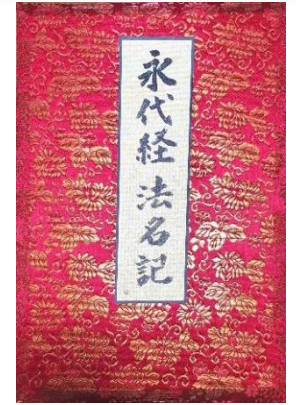 永代経法名記